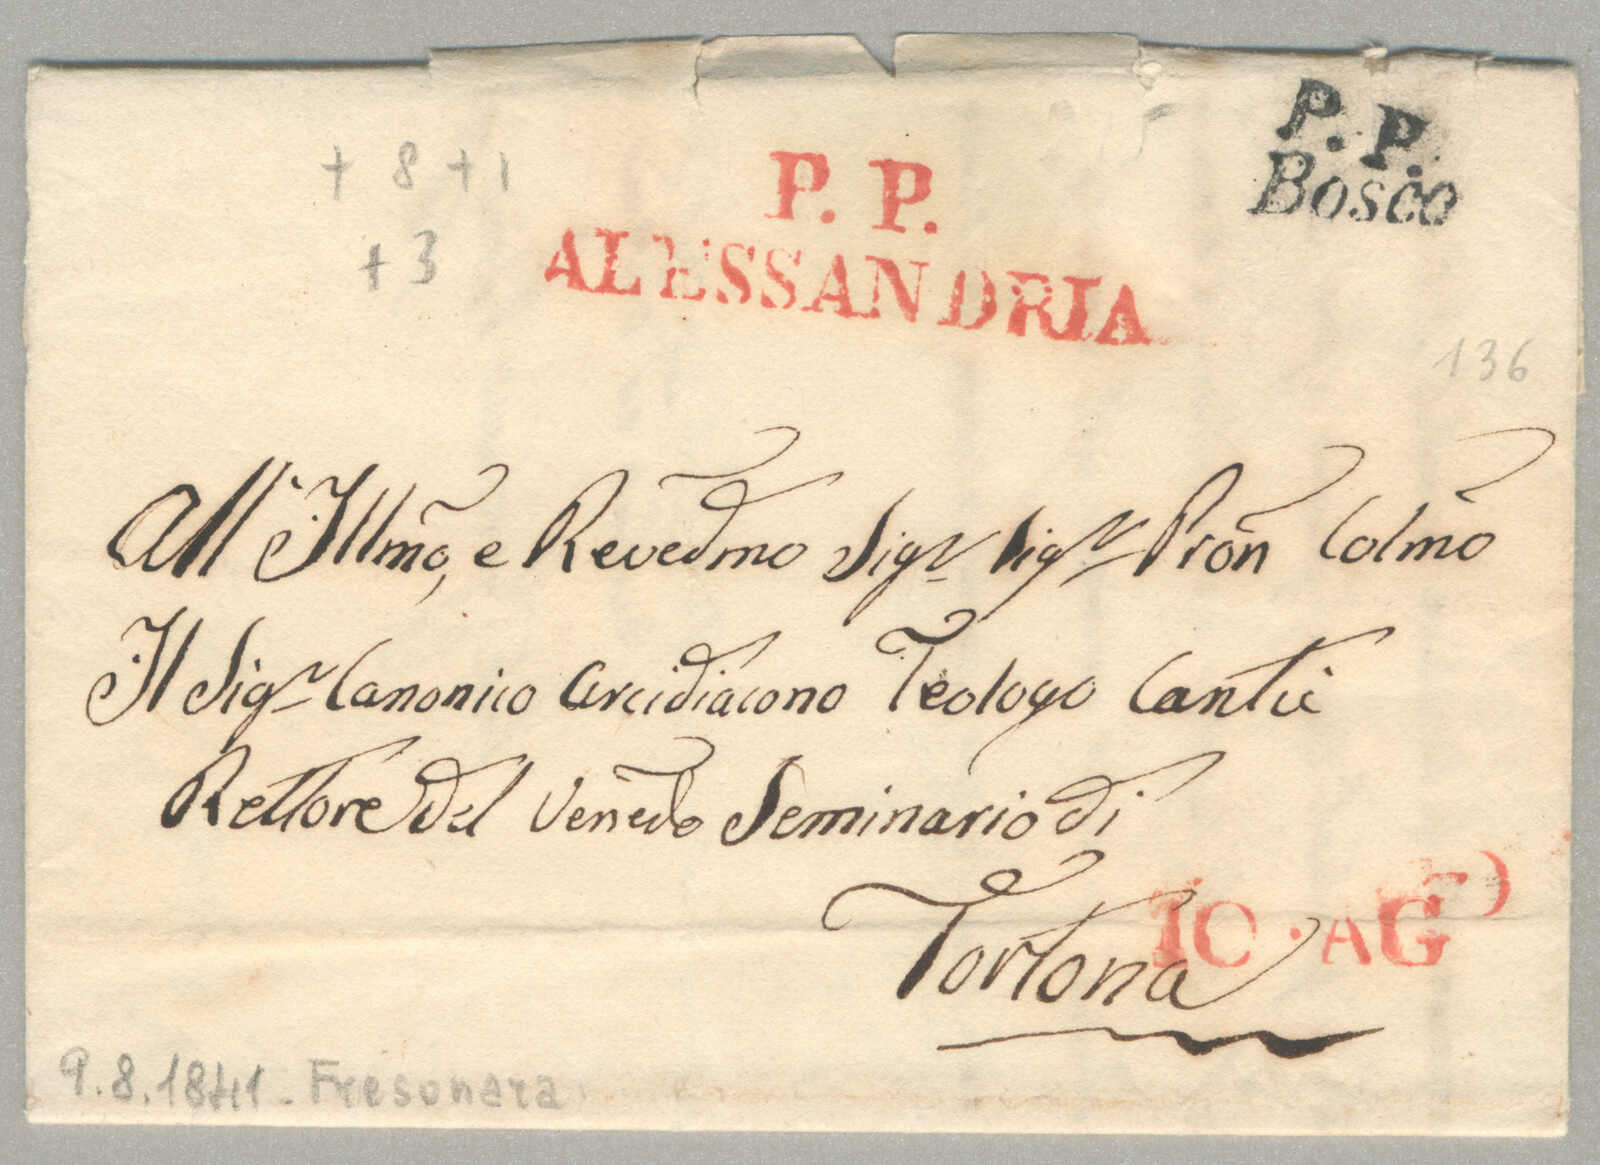 P. P.
Bosco
+ 8 + 1
+ 3
P. P.
ALESSANDRIA
136
All' Illmo, e Revedmo Sigr Sigr Pron Colmo
Il Sigr Canonico Arcidiacono Teologo Cantù
Rettore del Venedo Seminario di
Tortona
10 · AG
9.8.1841 - Fresonara